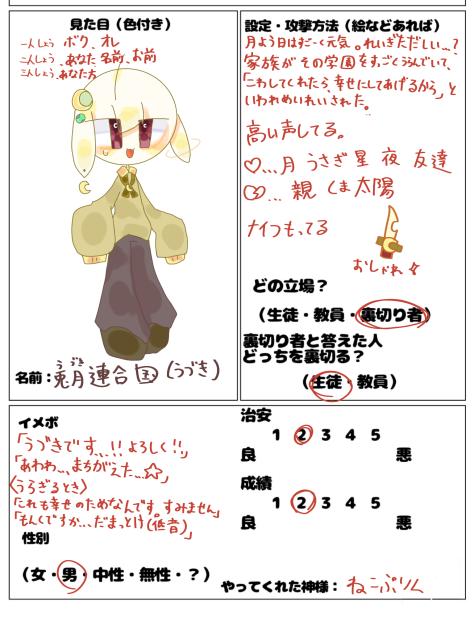 見た目（色付き）
一人しょう ボク、オレ
二人しょう、あなた 名前、お前
三人しょう、あなた方
名前：兎月連合国(うづき)
うづき
設定・攻撃方法（絵などあれば）
月よう日はすごーく元気。れいぎただしい…？
家族がその学園をすごくうらんでいて、
「こわしてくれたら、幸せにしてあげるから」と
いわれめいれいされた。
高い声してる。
♡…月 うさぎ 星 夜 友達
… 親 くま 太陽
ナイフもってる
おしゃれ☆
どの立場？
（生徒・教員・裏切り者）
裏切り者と答えた人
どっちを裏切る？
（生徒・教員）
イメボ
「うづきです…!!よろしく!!」
「あわわ…、まちがえた…☆」
〈うらぎるとき〉
「これも幸せのためなんです。すみません」
「もんくですか…だまっとけ(低音)」
性別
（女・男・中性・無性・？）
治安
1 2 3 4 5
良 悪
成績
1 2 3 4 5
良 悪
やってくれた神様：ねこぷりん